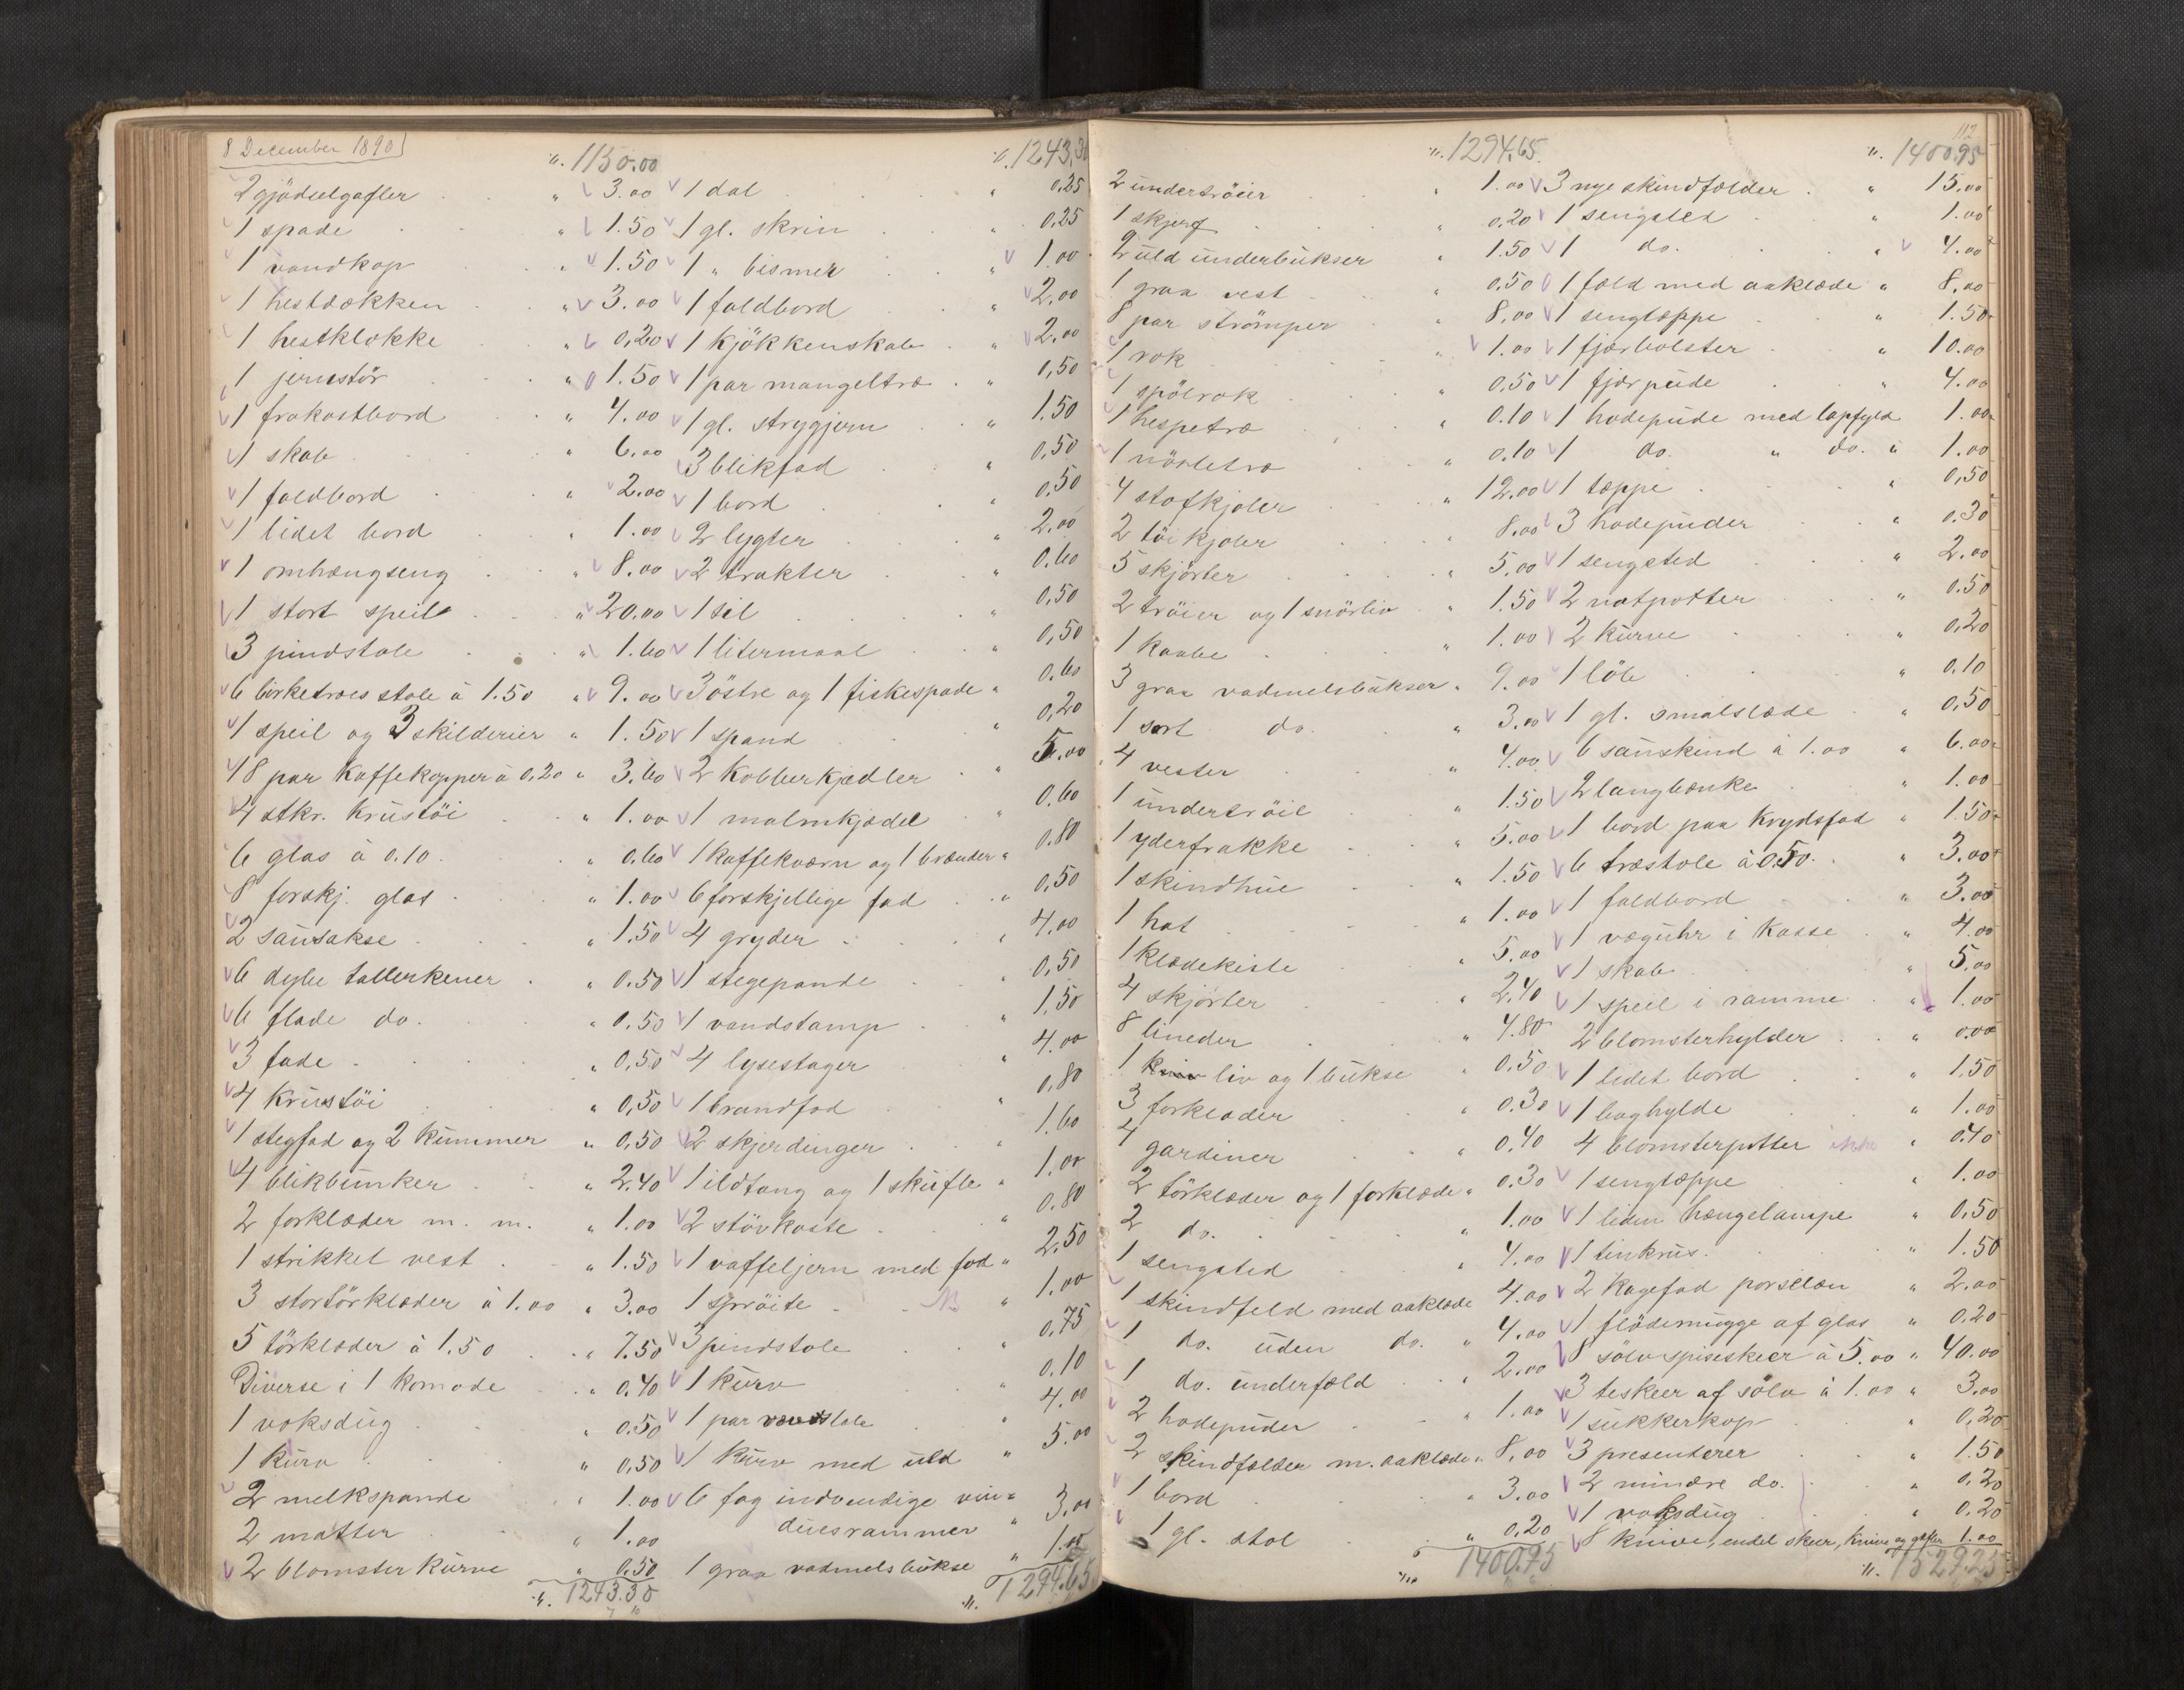 8 December 1890
". 1150.00
2 gjödselgafler " 3.00
1 spade " 1.50
1 vandkop " 1.50
1 hestdækken " 3.00
1 hestklokke " 0,20
1 jernstör " 1.50
1 frokostbord " 4.00
1 skab " 6.00
1 foldbord " 2.00
1 lidet bord " 1.00
1 omhængseng " 8.00
1 stort speil " 20.00
3 pindstole " 1.60
6 birketræes stole à 1.50 " 9.00
1 speil og 3 skilderier " 1.50
18 par Kaffekopper à 0.20 " 3.60
4 stkr. Krustöi " 1.00
6 glas à 0.10 " 0.60
8 forskj. glas " 1.00
2 sausakse " 1.50
6 dybe tallerkener " 0.50
6 flade do. " 0.50
3 fade " 0,50
4 Krustöi " 0,50
1 stegfad og 2 Kummer " 0,50
4 blikbunker " 2.40
2 forklæder m. m. " 1.00
1 strikket vest " 1.50
3 stortörklæder à 1.00 " 3.00
5 törklæder à 1.50 " 7.50
Diverse i 1 Komode " 0.40
1 voksdug " 0.50
1 Kurv " 0,50
2 melkspande " 1.00
2 matter " 1.00
2 blomsterkurve " 0.50
". 1243.30
". 1243,30
1 dal " 0,25
1 gl. skrin " 0,25
1 " bismer " 1.00
1 foldbord " 2.00
1 Kjökkenskab " 2.00
1 par mangeltræ " 0,50
1 gl. strygjern " 1.50
3 blikfad " 0,50
1 bord " 0.50
2 lygter " 2.00
2 trakter " 0.60
1 sil " 0,50
1 litermaal " 0,50
3 östre og 1 fiskespade " 0.60
1 spand " 0,20
2 Kobberkjedler " 5.00
1 malmkjedel " 0.60
1 kaffekværn og 1 brænder " 0.80
6 forskjellige fad " 0,50
4 gryder " 4.00
1 stegepande " 0,50
1 vandstamp " 1,50
4 lysestager " 4.00
1 brandfad " 0,80
2 skjerdinger " 1.60
1 ildtang og 1 skufle " 1.00
2 stövkoste " 0.80
1 vaffeljern med fod " 2,50
1 spröite " 1.00
3 pindstole " 0.75
1 Kurv " 0.10
1 par vævstole " 4.00
1 Kurv med uld " 5.00
6 fag indvendige vin=
duesrammer " 3,00
1 graa vadmelsbukse " 1.00
". 1294.65
". 1294.65
2 undertröier " 1.00
1 skjerf " 0,20
2 uld underbukser " 1.50
1 graa vest " 0,50
8 par strömper " 8,00
1 rok " 1.00
1 spölrok " 0,50
1 hespetræ " 0.10
1 nöstetræ " 0.10
4 stofkjoler " 12.00
2 töikjoler " 8,00
5 skjörter " 5.00
2 tröier og 1 snörliv " 1.50
1 kaabe " 1.00
3 graa vadmelsbukser " 9.00
1 sort do. " 3.00
4 vester " 4.00
1 undertröie " 1.50
1 yderfrakke " 5.00
1 skindhue " 1.50
1 hat " 1.00
1 klædekiste " 5.00
4 skjörter " 2.40
8 lineder " 4.80
1 liv og 1 bukse " 0.50
3 forklæder " 0.30
4 gardiner " 0,40
2 törklæder og 1 forklæde " 0.30
2 do. " 1.00
1 sengsted " 4.00
1 skindfeld med aaklæde 4.00
1 do. uden do. " 4.00
1 do. underfæld " 2.00
2 hodepuder " 1.00
2 skindfælder m. aaklæde " 8,00
1 bord " 3.00
1 gl. stol " 0,20
". 1400.95
112
". 1400.95
3 nye skindfælder " 15.00
1 sengsted " 1.00
1 do. " 4.00
1 fæld med aaklæde " 8,00
1 sengtæppe " 1.50
1 fjærbolster " 10.00
1 fjærpude " 4.00
1 hodepude med lapfyld 1.00
1 do. " do. " 1.00
1 tæppe " 0,50
3 hodepuder " 0.30
1 sengsted " 2.00
2 natpotter " 0.50
2 Kurve " 0,20
1 löb " 0.10
1 gl. smalslæde " 0,50
6 sauskind à 1.00 " 6.00
2 langbænke " 1.00
1 bord paa Krydsfod " 1.50
6 træstole à 0.50 " 3.00
1 foldbord " 3.00
1 væguhr i Kasse " 4.00
1 skab " 5.00
1 speil i ramme " 1.00
2 blomsterhylder " 0.00
1 lidet bord " 1.50
1 boghylde " 1.00
4 blomsterpotter " 0.40
1 sengtæppe " 1.00
1 liden hængelampe " 0,50
1 tinkrus " 1.50
2 Kagefad porselæn " 2.00
1 flödemugge af glas " 0.20
8 sölv spiseskeer à 5.00 " 40.00
3 teskeer af sölv à 1.00 " 3.00
1 sukkerkop " 0,20
3 presenterer " 1.50
2 mindre do. " 0,20
1 voksdug " 0.20
8 knive, endel skeer, knive og gafler 1.00
". 1529.25